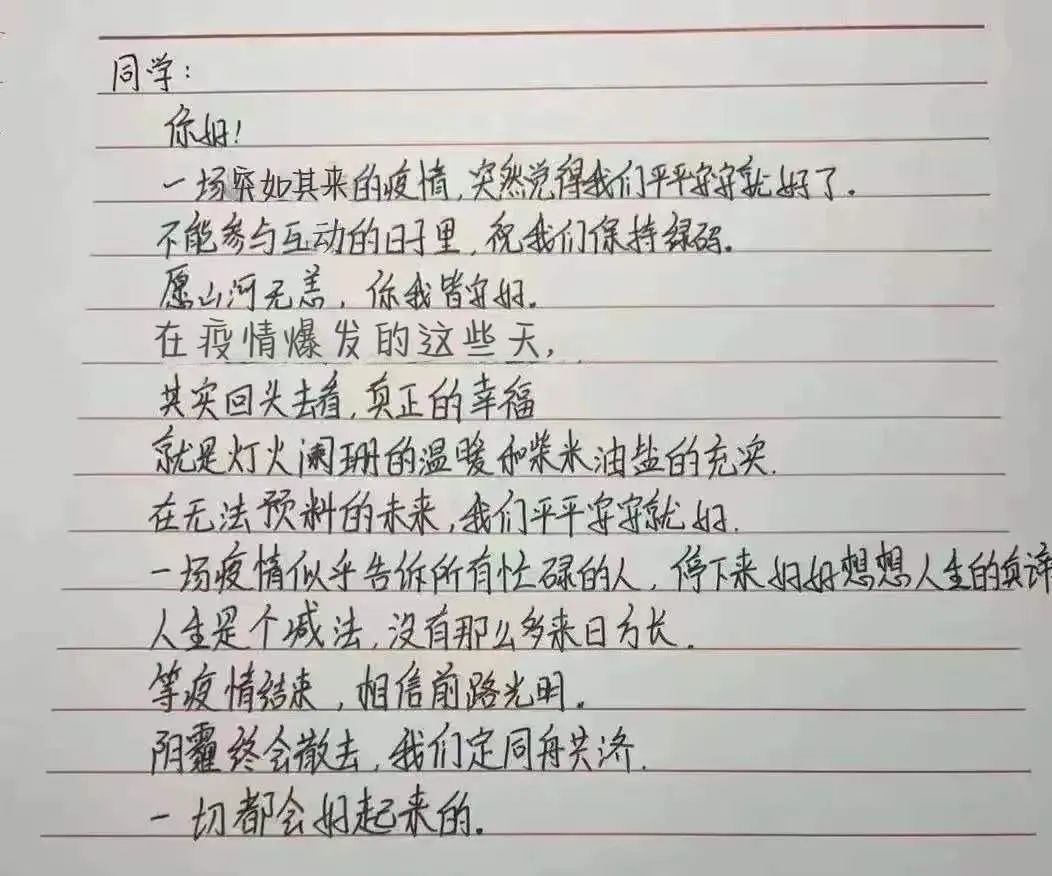 同学：
你好！
一场突如其来的疫情，突然觉得我们平平安安就好了。
不能参与互动的日子里，祝我们保持绿码。
愿山河无恙，你我皆安好。
在疫情爆发的这些天，
其实回头去看，真正的幸福
就是灯火阑珊的温暖和柴米油盐的充实.
在无法预料的未来，我们平平安安就好.
一场疫情似乎告诉所有忙碌的人，停下来好好想想人生的真谛
人生是个减法，没有那么多来日方长.
等疫情结束，相信前路光明。
阴霾终会散去，我们定同舟共济.
一切都会好起来的。